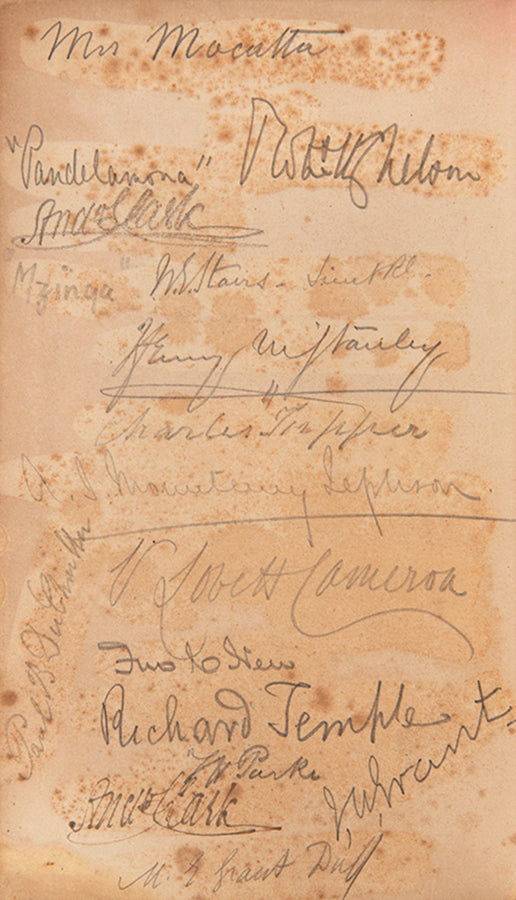 Mrs Mocatta
"Pandelamona" Robt H Nelson
Andw Clark
"Mzinga" W.E. Stairs - Lieut RE.
Henry M Stanley
Charles Tupper
A. J. Mounteney Jephson
V. Lovett Cameron
Paul B Du Chaillu
Jno
Richard Temple
T H Parke
J A Grant
Andw Clark
M. E Grant Duff